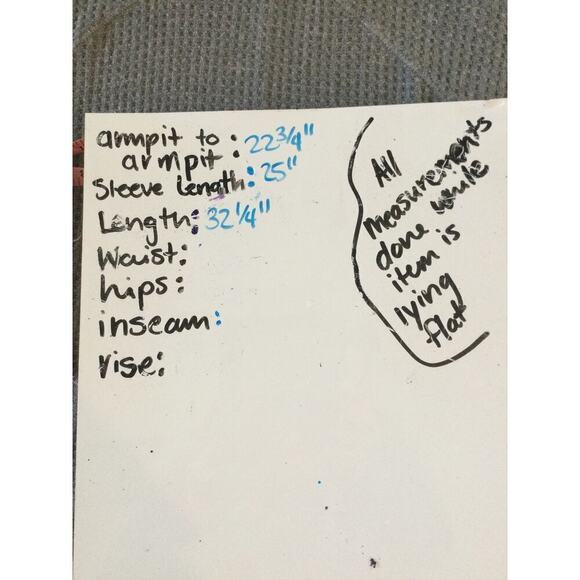 armpit to
armpit: 22 3/4"
Sleeve Length: 25"
Length: 32 1/4"
Waist:
hips:
inseam:
rise:
All
measurements
done while
item is
lying
flat